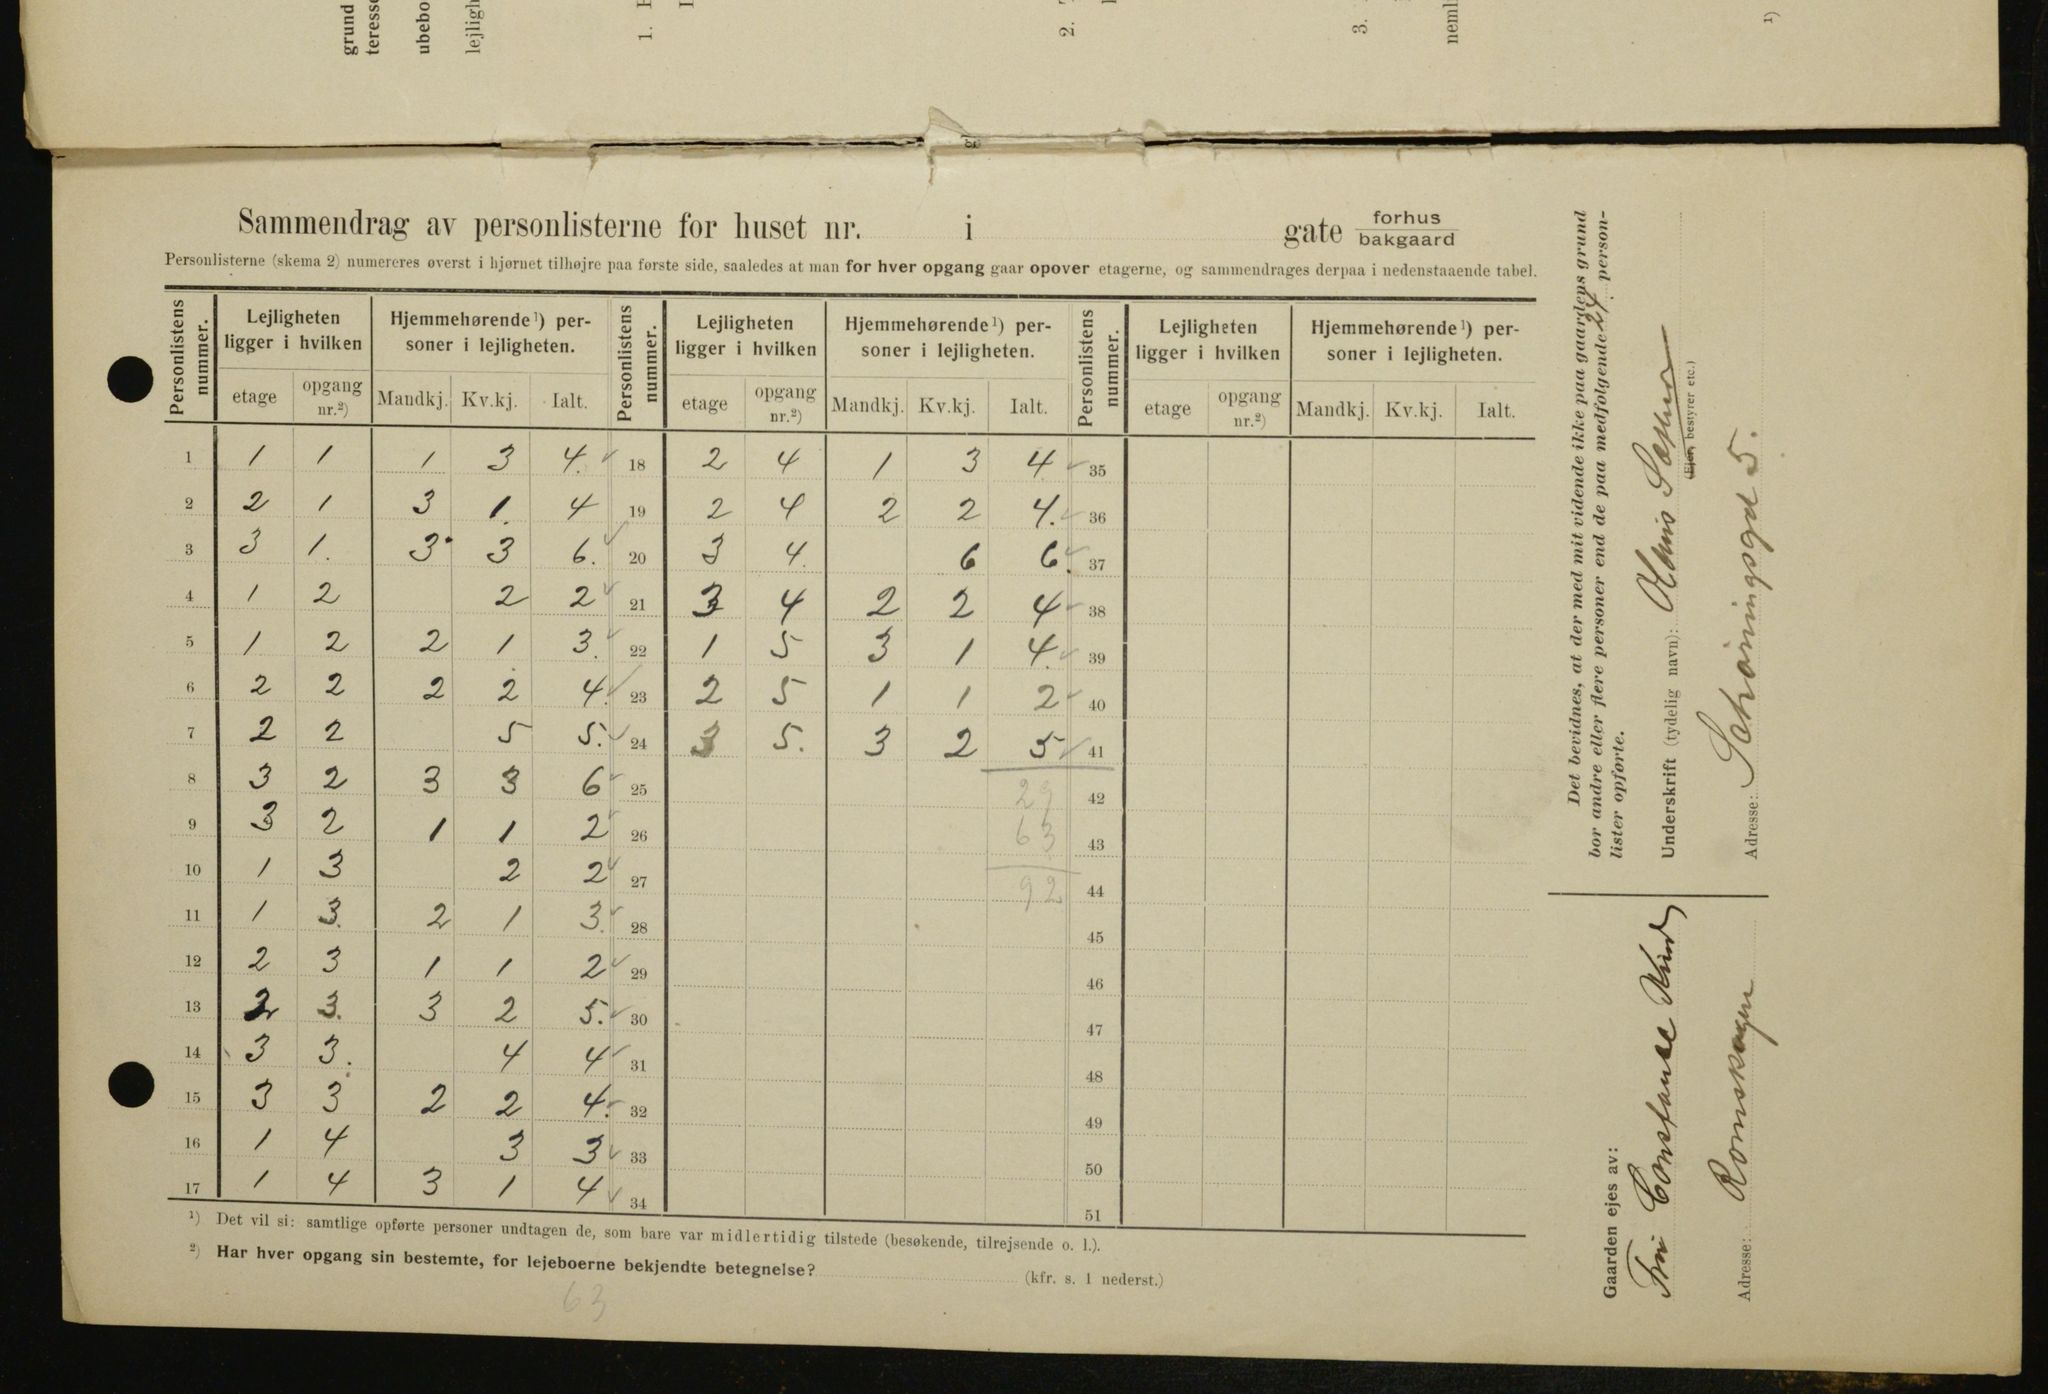 Sammendrag av personlisterne for huset nr. i gate forhus / bakgaard
Personlisterne (skema 2) numereres øverst i hjørnet tilhøjre paa første side, saaledes at man for hver opgang gaar opover etagerne, og sammendrages derpaa i nedenstaaende tabel.
Personlistens nummer. Lejligheten ligger i hvilken Hjemmehørende¹) personer i lejligheten. Personlistens nummer. Lejligheten ligger i hvilken Hjemmehørende¹) personer i lejligheten. Personlistens nummer. Lejligheten ligger i hvilken Hjemmehørende¹) personer i lejligheten.
etage opgang nr.²) Mandkj. Kv.kj. Ialt. etage opgang nr.²) Mandkj. Kv.kj. Ialt. etage opgang nr.²) Mandkj. Kv.kj. Ialt.
1 1 1 1 3 4. 18 2 4 1 3 4 35
2 2 1 3 1. 4 19 2 4 2 2 4. 36
3 3 1. 3 3 6. 20 3 4. 6 6. 37
4 1 2 2 2 21 3 4 2 2 4 38
5 1 2 2 1 3. 22 1 5 3 1 4. 39
6 2 2 2 2 4. 23 2 5 1 1 2 40
7 2 2 5 5. 24 3 5. 3 2 5 41
8 3 2 3 3 6 25 29 42
9 3 2 1 1 2 26 63 43
10 1 3 2 2 27 92 44
11 1 3. 2 1 3. 28 45
12 2 3 1 1 2 29 46
13 2 3. 3 2 5. 30 47
14 3 3. 4 4 31 48
15 3 3 2 2 4. 32 49
16 1 4 3 3 33 50
17 1 4 3 1 4 34 51
¹) Det vil si: samtlige opførte personer undtagen de, som bare var midlertidig tilstede (besøkende, tilrejsende o. l.).
²) Har hver opgang sin bestemte, for lejeboerne bekjendte betegnelse? (kfr. s. 1 nederst.)
63
Det bevidnes, at der med mit vidende ikke paa gaardens grund
bor andre eller flere personer end de paa medfølgende 24 person-
lister opførte.
Underskrift (tydelig navn):
Ejer, bestyrer etc.)
Adresse: Schøningsgd 5.
Gaarden ejes av:
Fru Constance
Adresse: Romskogen
grund
teresse
ubebo
lejligh
1.
2.
3.
neml
¹)